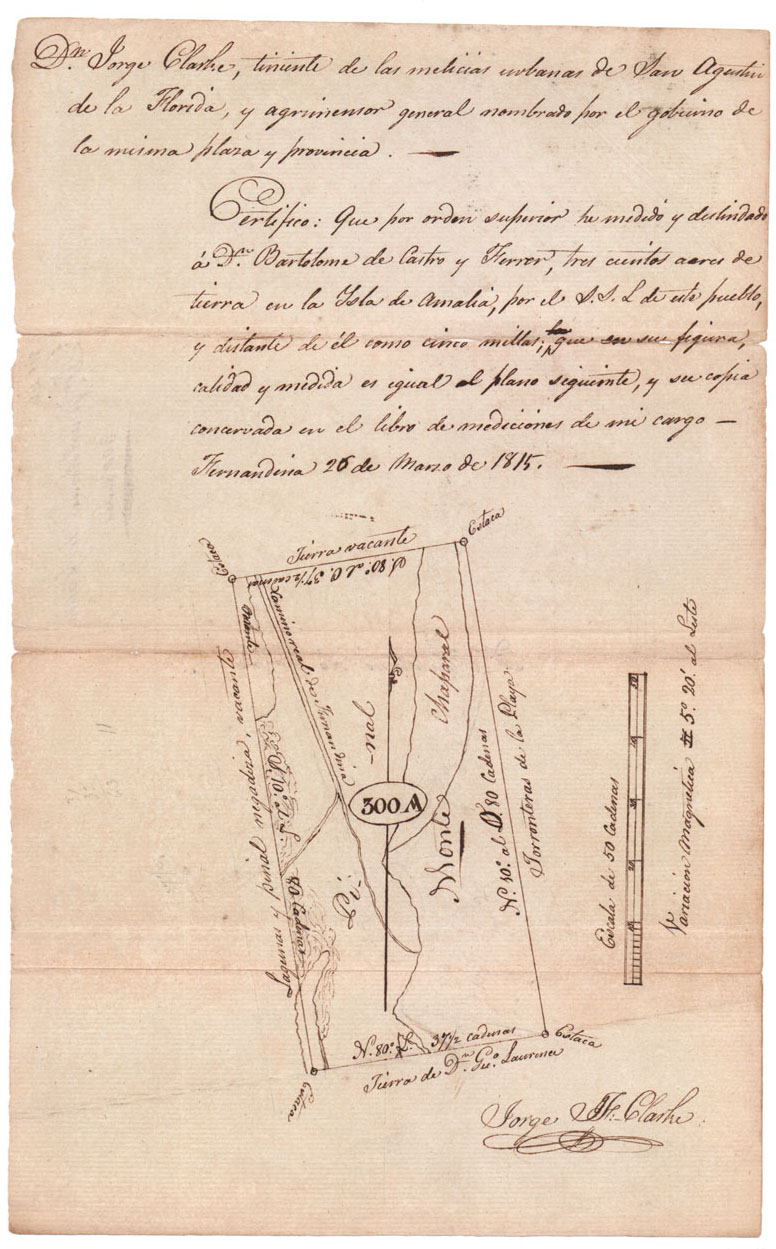 Dn. Jorge Clarke, tiniente de las milicias urbanas de San Agustin
de la Florida, y agrimensor general nombrado por el gobierno de
la misma plaza y provincia.
Certifico: Que por orden superior he medido y deslindado
á Dn. Bartolome de Castro y Ferrer, tres cientos acres de
tierra en la Isla de Amalia, por el S. S. L de este pueblo,
y distante de él como cinco millas; que su figura,
calidad y medida es igual al plano siguiente, y su copia
concervada en el libro de mediciónes de mi cargo —
Fernandina 26 de Marzo de 1815.
Estaca
Tierra vacante
Estaca
S. 80º. al O. 37 1/2 cadenas
Camino real de Fernandina
Lagunas y pinal vacante
S. 10º. al L. 80 Cadenas
Chaparal
Pi-
nal
300 A
Monte
Nº. 10º. al O. 80 Cadenas
Torronteras de la Playa
Escala de 50 Cadenas
50
40
30
20
10
Variación Magnética 5º. 20'. al Leste
Nº. 80º. L. 37 1/2 cadenas
Tierra de Dn. Geo. Laurence
Estaca
Estaca
Jorge J. F. Clarke